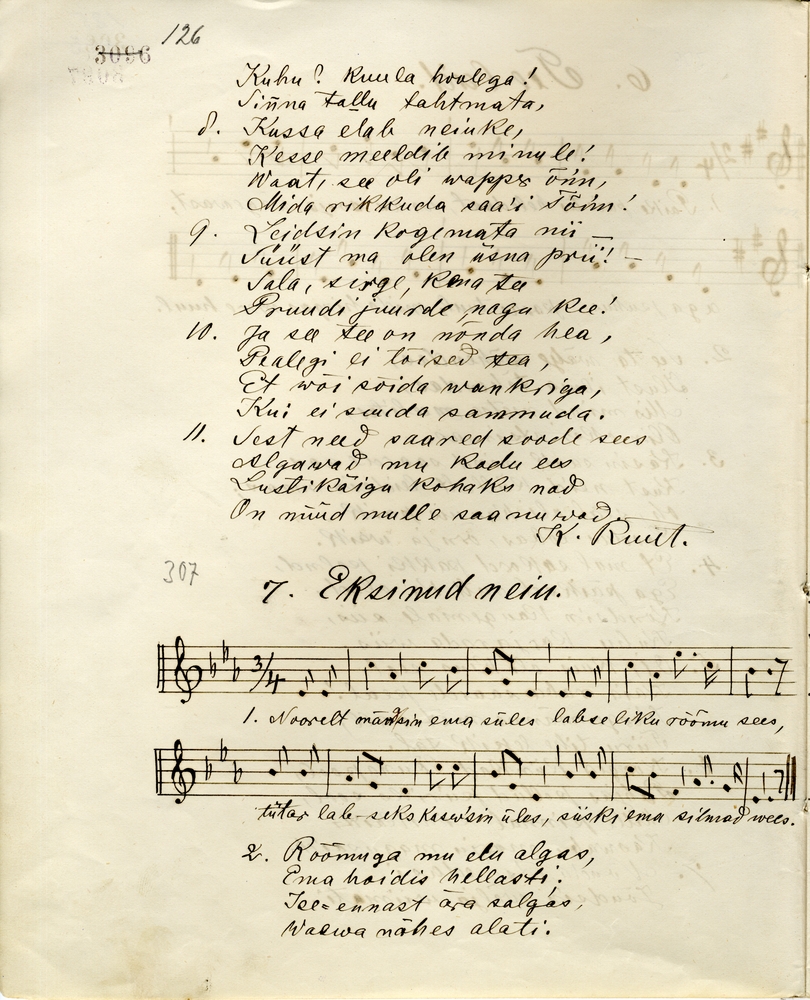 126
3096
Kuhu? Kuula hoolega!
Sinna tallu tahtmata,
8. Kussa elab neiuke,
Kesse meeldib minule!
Waat, see oli wapper õnn,
Mida rikkuda saa'i sõnn!
9. Leidsin kogemata nii —
Süüst ma olen üsna prii! —
Sala, sirge, kena tee
Pruudi juurde nagu kee!
10. Ja see tee on nõnda hea,
Pealegi ei tõised tea,
Et wõi sõida wankriga,
Kui ei suuda sammuda.
11. Sest need saared soode sees
Algawad mu kodu ees
Lustikäigu kohaks nad
On nüüd mulle saanuwad.
K. Ruut.
307
7. Eksinud neiu.
3/4
1. Noorelt mängsin ema süles lapseliku rõõmu sees,
tütar lab-seks kasw'sin üles, siiski ema silmad wees.
2. Rõõmuga mu elu algas,
Ema hoidis hellasti;
Ise-ennast ära salgas,
Waewa nähes alati.